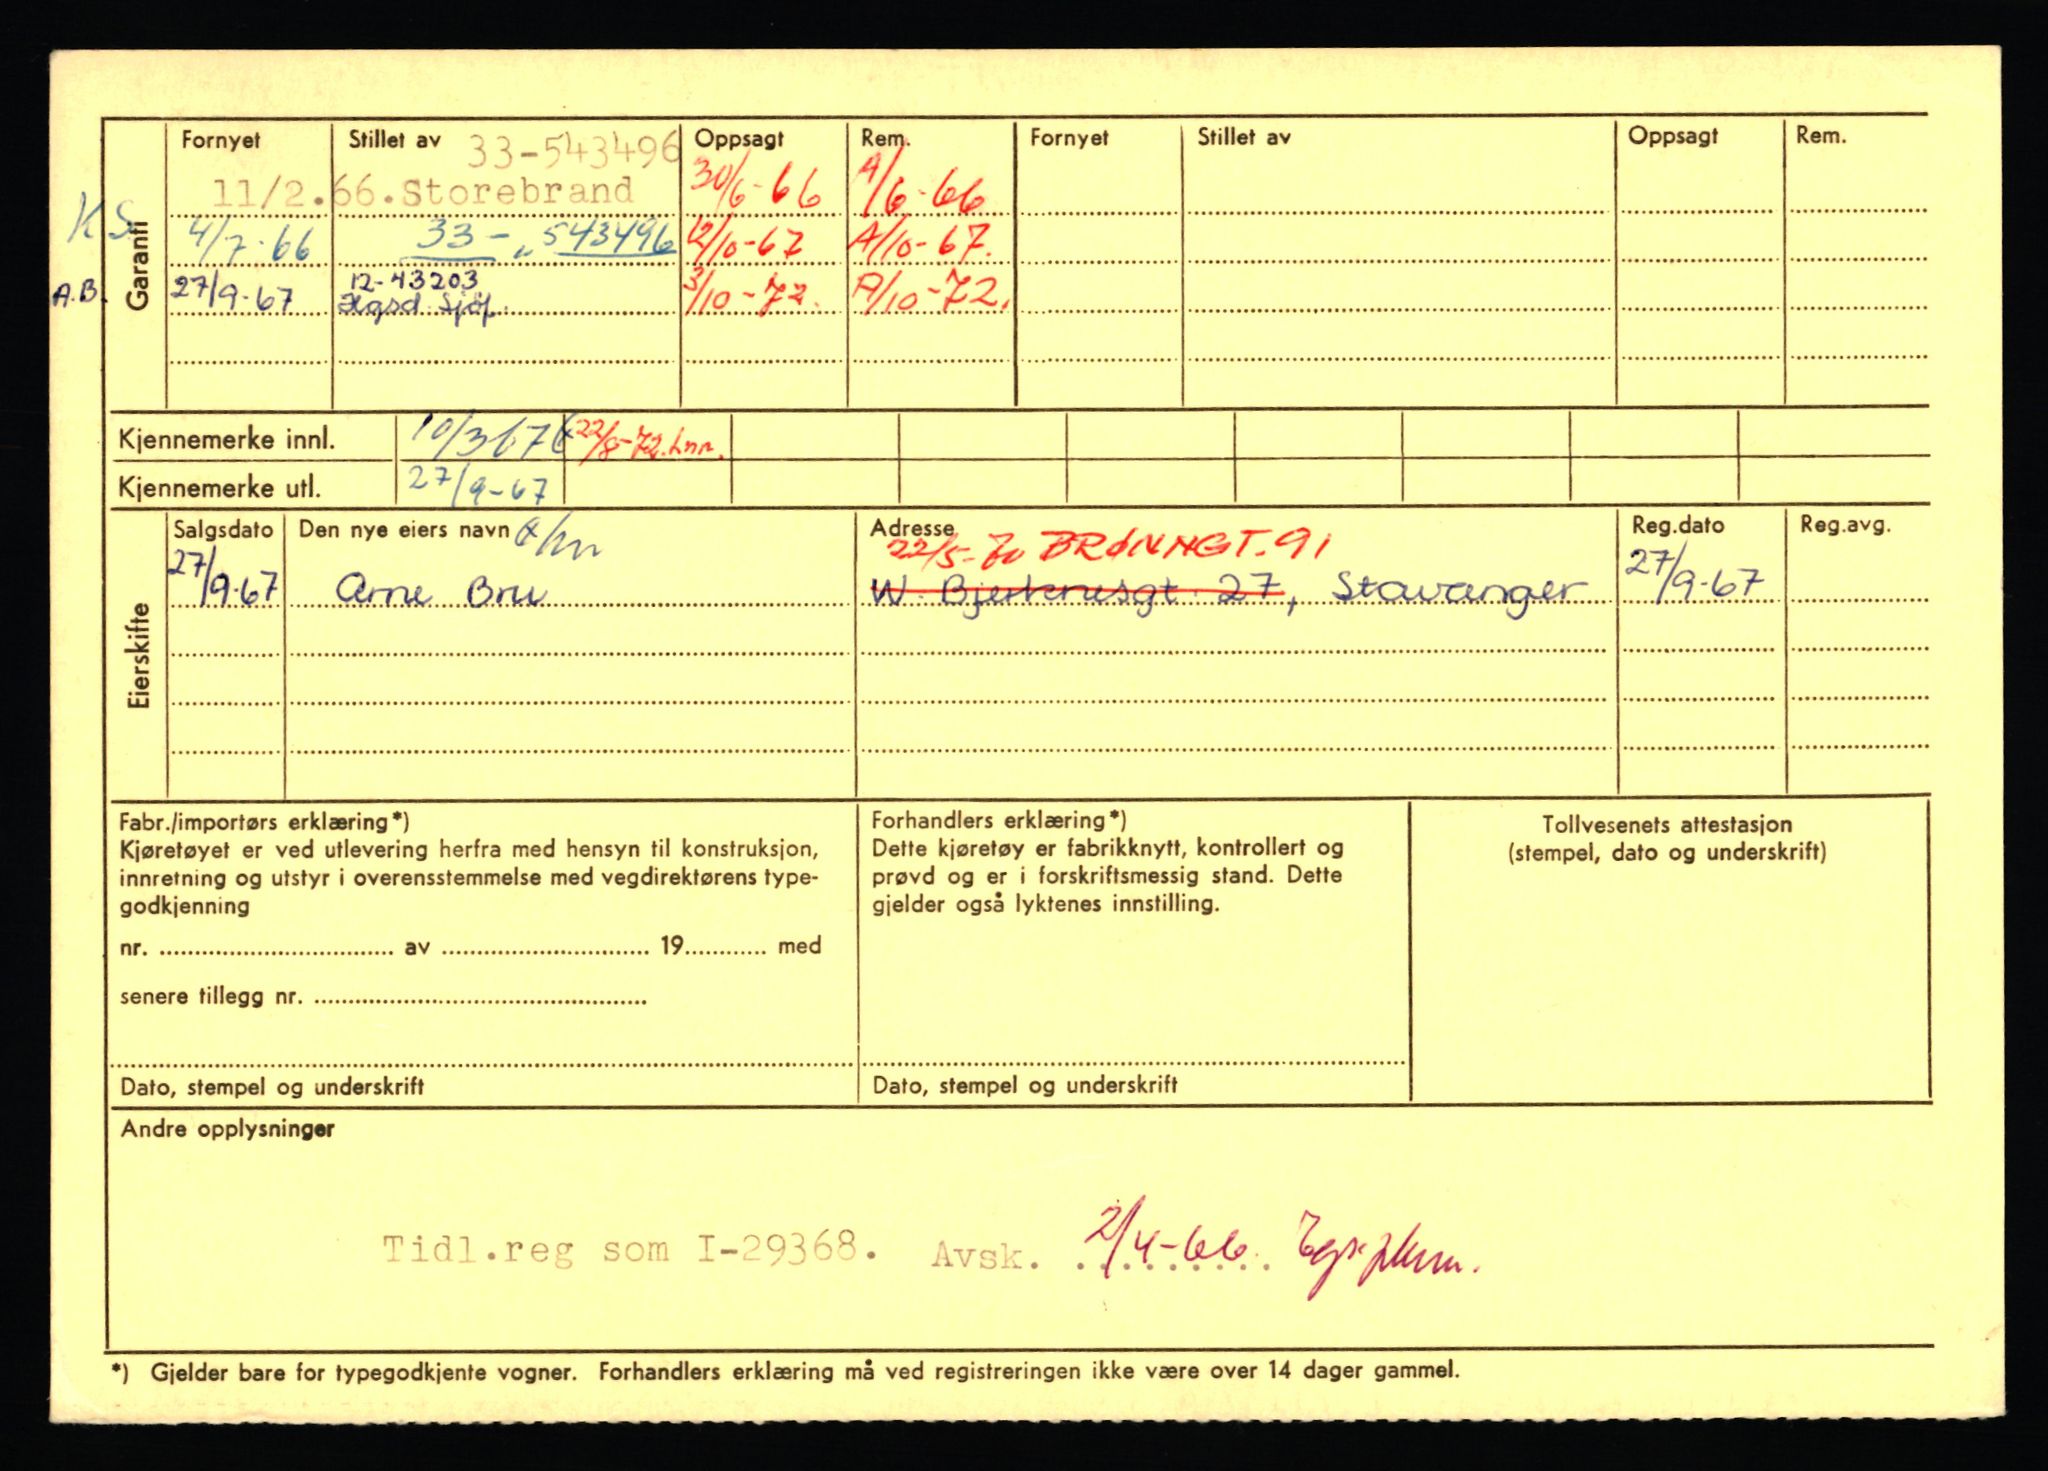 Garanti
Fornyet Stillet av 33-543496 Oppsagt Rem. Fornyet Stillet av Oppsagt Rem.
11/2.66. Storebrand 30/6-66 A/6-66
K.S. 4/7-66 33-„543496 12/10-67 A/10-67.
A.B. 27/9-67 12-43203 Hgsd. Sjøf. 3/10-72. A/10-72.
Kjennemerke innl. 10/3 67 22/8-72.
Kjennemerke utl. 27/9-67
Eierskifte
Salgsdato Den nye eiers navn Adresse Reg.dato Reg.avg.
22/5-70 BRØNNGT. 91
27/9-67 Arne Bru W. Bjerknesgt. 27, Stavanger 27/9-67
Fabr./importørs erklæring*)
Kjøretøyet er ved utlevering herfra med hensyn til konstruksjon,
innretning og utstyr i overensstemmelse med vegdirektørens type-
godkjenning
nr. ............ av ............ 19........ med
senere tillegg nr. ............
Dato, stempel og underskrift
Forhandlers erklæring*)
Dette kjøretøy er fabrikknytt, kontrollert og
prøvd og er i forskriftsmessig stand. Dette
gjelder også lyktenes innstilling.
Dato, stempel og underskrift
Tollvesenets attestasjon
(stempel, dato og underskrift)
Andre opplysninger
Tidl.reg som I-29368. Avsk. 2/4-66.
*) Gjelder bare for typegodkjente vogner. Forhandlers erklæring må ved registreringen ikke være over 14 dager gammel.